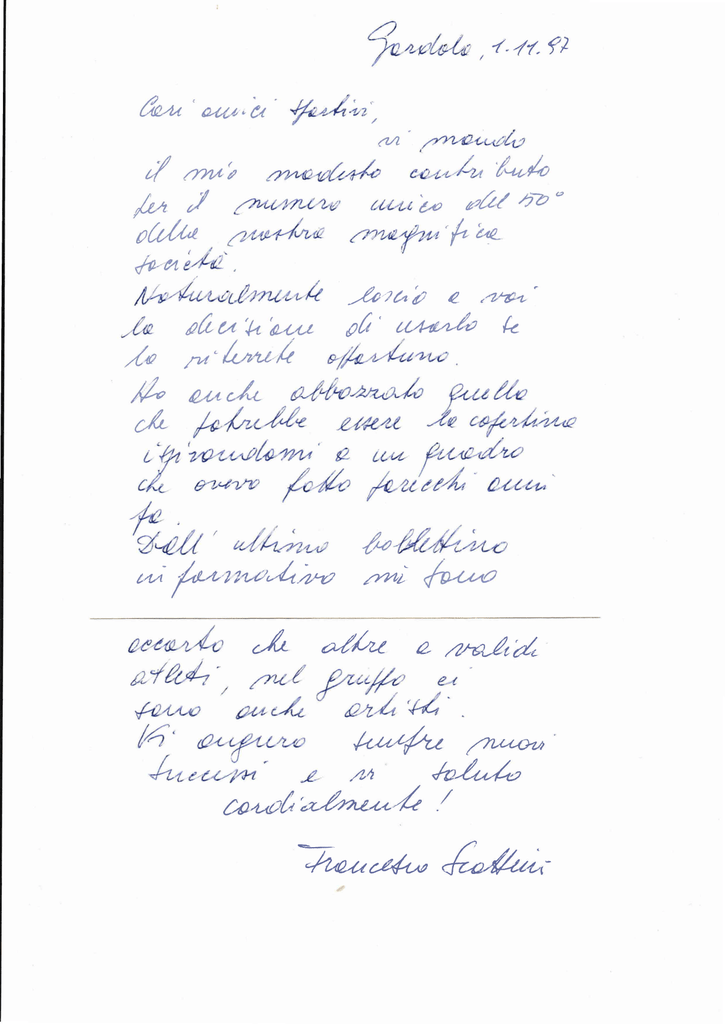 Gardolo, 1.11.97
Cari amici sportivi,
vi mando
il mio modesto contributo
per il numero unico del 50°
della nostra magnifica
società.
Naturalmente lascio a voi
la decisione di usarlo se
lo riterrete opportuno.
Ho anche abbozzato quella
che potrebbe essere la copertina
ispirandomi a un quadro
che avevo fatto parecchi anni
fa.
Dall' ultimo bollettino
informativo mi sono
accorto che oltre a validi
atleti, nel gruppo ci
sono anche artisti.
Vi auguro sempre nuovi
successi e vi saluto
cordialmente!
Francesco